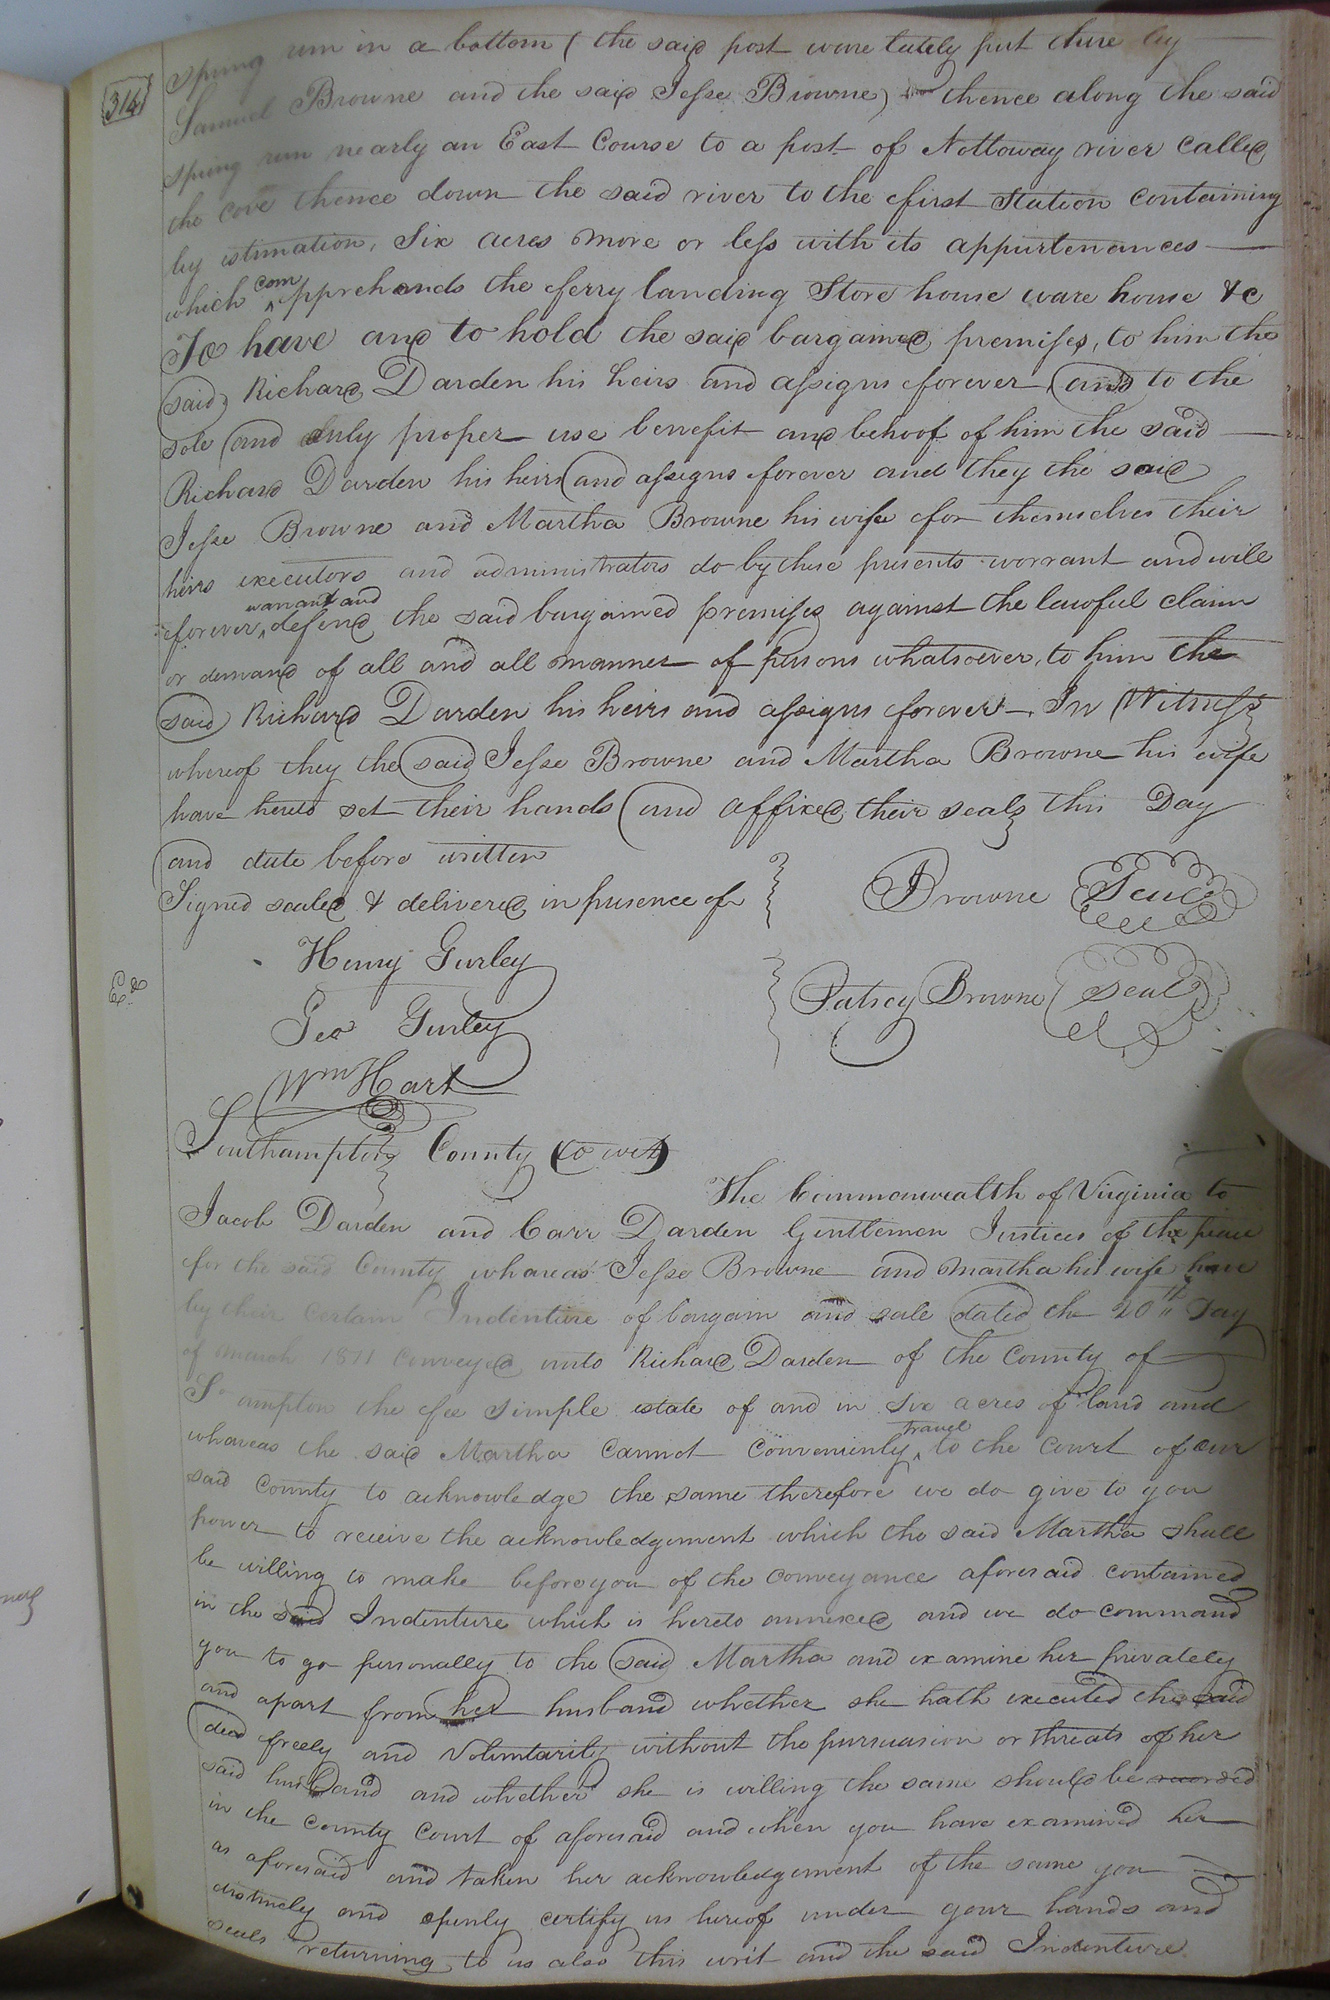 314
spring run in a bottom ( the said post ware lately put there by
Samuel Browne and the said Jesse Browne) thence along the said
spring run nearly an East Course to a post of Nottoway river called
the cove thence down the said river to the first Station containing
by estimation, Six acres more or less with its appurtenances
which com pprehends the ferry landing Store house ware house &c
To have and to hold the said bargained premises, to him the
said Richard Darden his heirs and assigns forever and to the
sole and only proper use benefit and behoof of him the said
Richard Darden his heirs and assigns forever and they the said
Jesse Browne and Martha Browne his wife for themselves their
heirs executors and administrators do by these presents warrant and will
warrant and
forever, defend the said bargained premises against the lawful claim
or demand of all and all manner of persons whatsoever, to him the
said Richard Darden his heirs and assigns forever. In Witness
whereof they the said Jesse Browne and Martha Browne his wife
have hereto set their hands and affixed their seals this Day
and date before written
Signed sealed & delivered in presence of Browne Seal
Henry Gurley
Ed
Patsey Browne Seal
Geo Gurley
Wm Hart
Southampton County to wit
The Commonwealth of Virginia to
Jacob Darden and Carr Darden Gentlemen Justices of the peace
for the said County whareas Jesse Browne and Martha his wife have
by their certain Indenture of bargain and sale dated the 20th Day
of March 1811 conveyed unto Richard Darden of the County of
So ampton the fee simple estate of and in six acres of land and
travel
whareas the said Martha cannot conveniently to the court of our
said county to acknowledge the same therefore we do give to you
power to receive the acknowledgement which the said Martha shall
be willing to make before you of the conveyance aforesaid contained
in the said Indenture which is hereto annexed and we do command
you to go personally to the said Martha and examine her privately
and apart from her husband whether she hath executed the said
deed freely and voluntarily without the pursuasion or threats of her
said husband and whether she is willing the same should be recorded
in the county court of aforesaid and when you have examined her
as aforesaid and taken her acknowledgement of the same you
distinctly and openly certify us hereof under your hands and
seals returning to us also this writ and the said Indenture